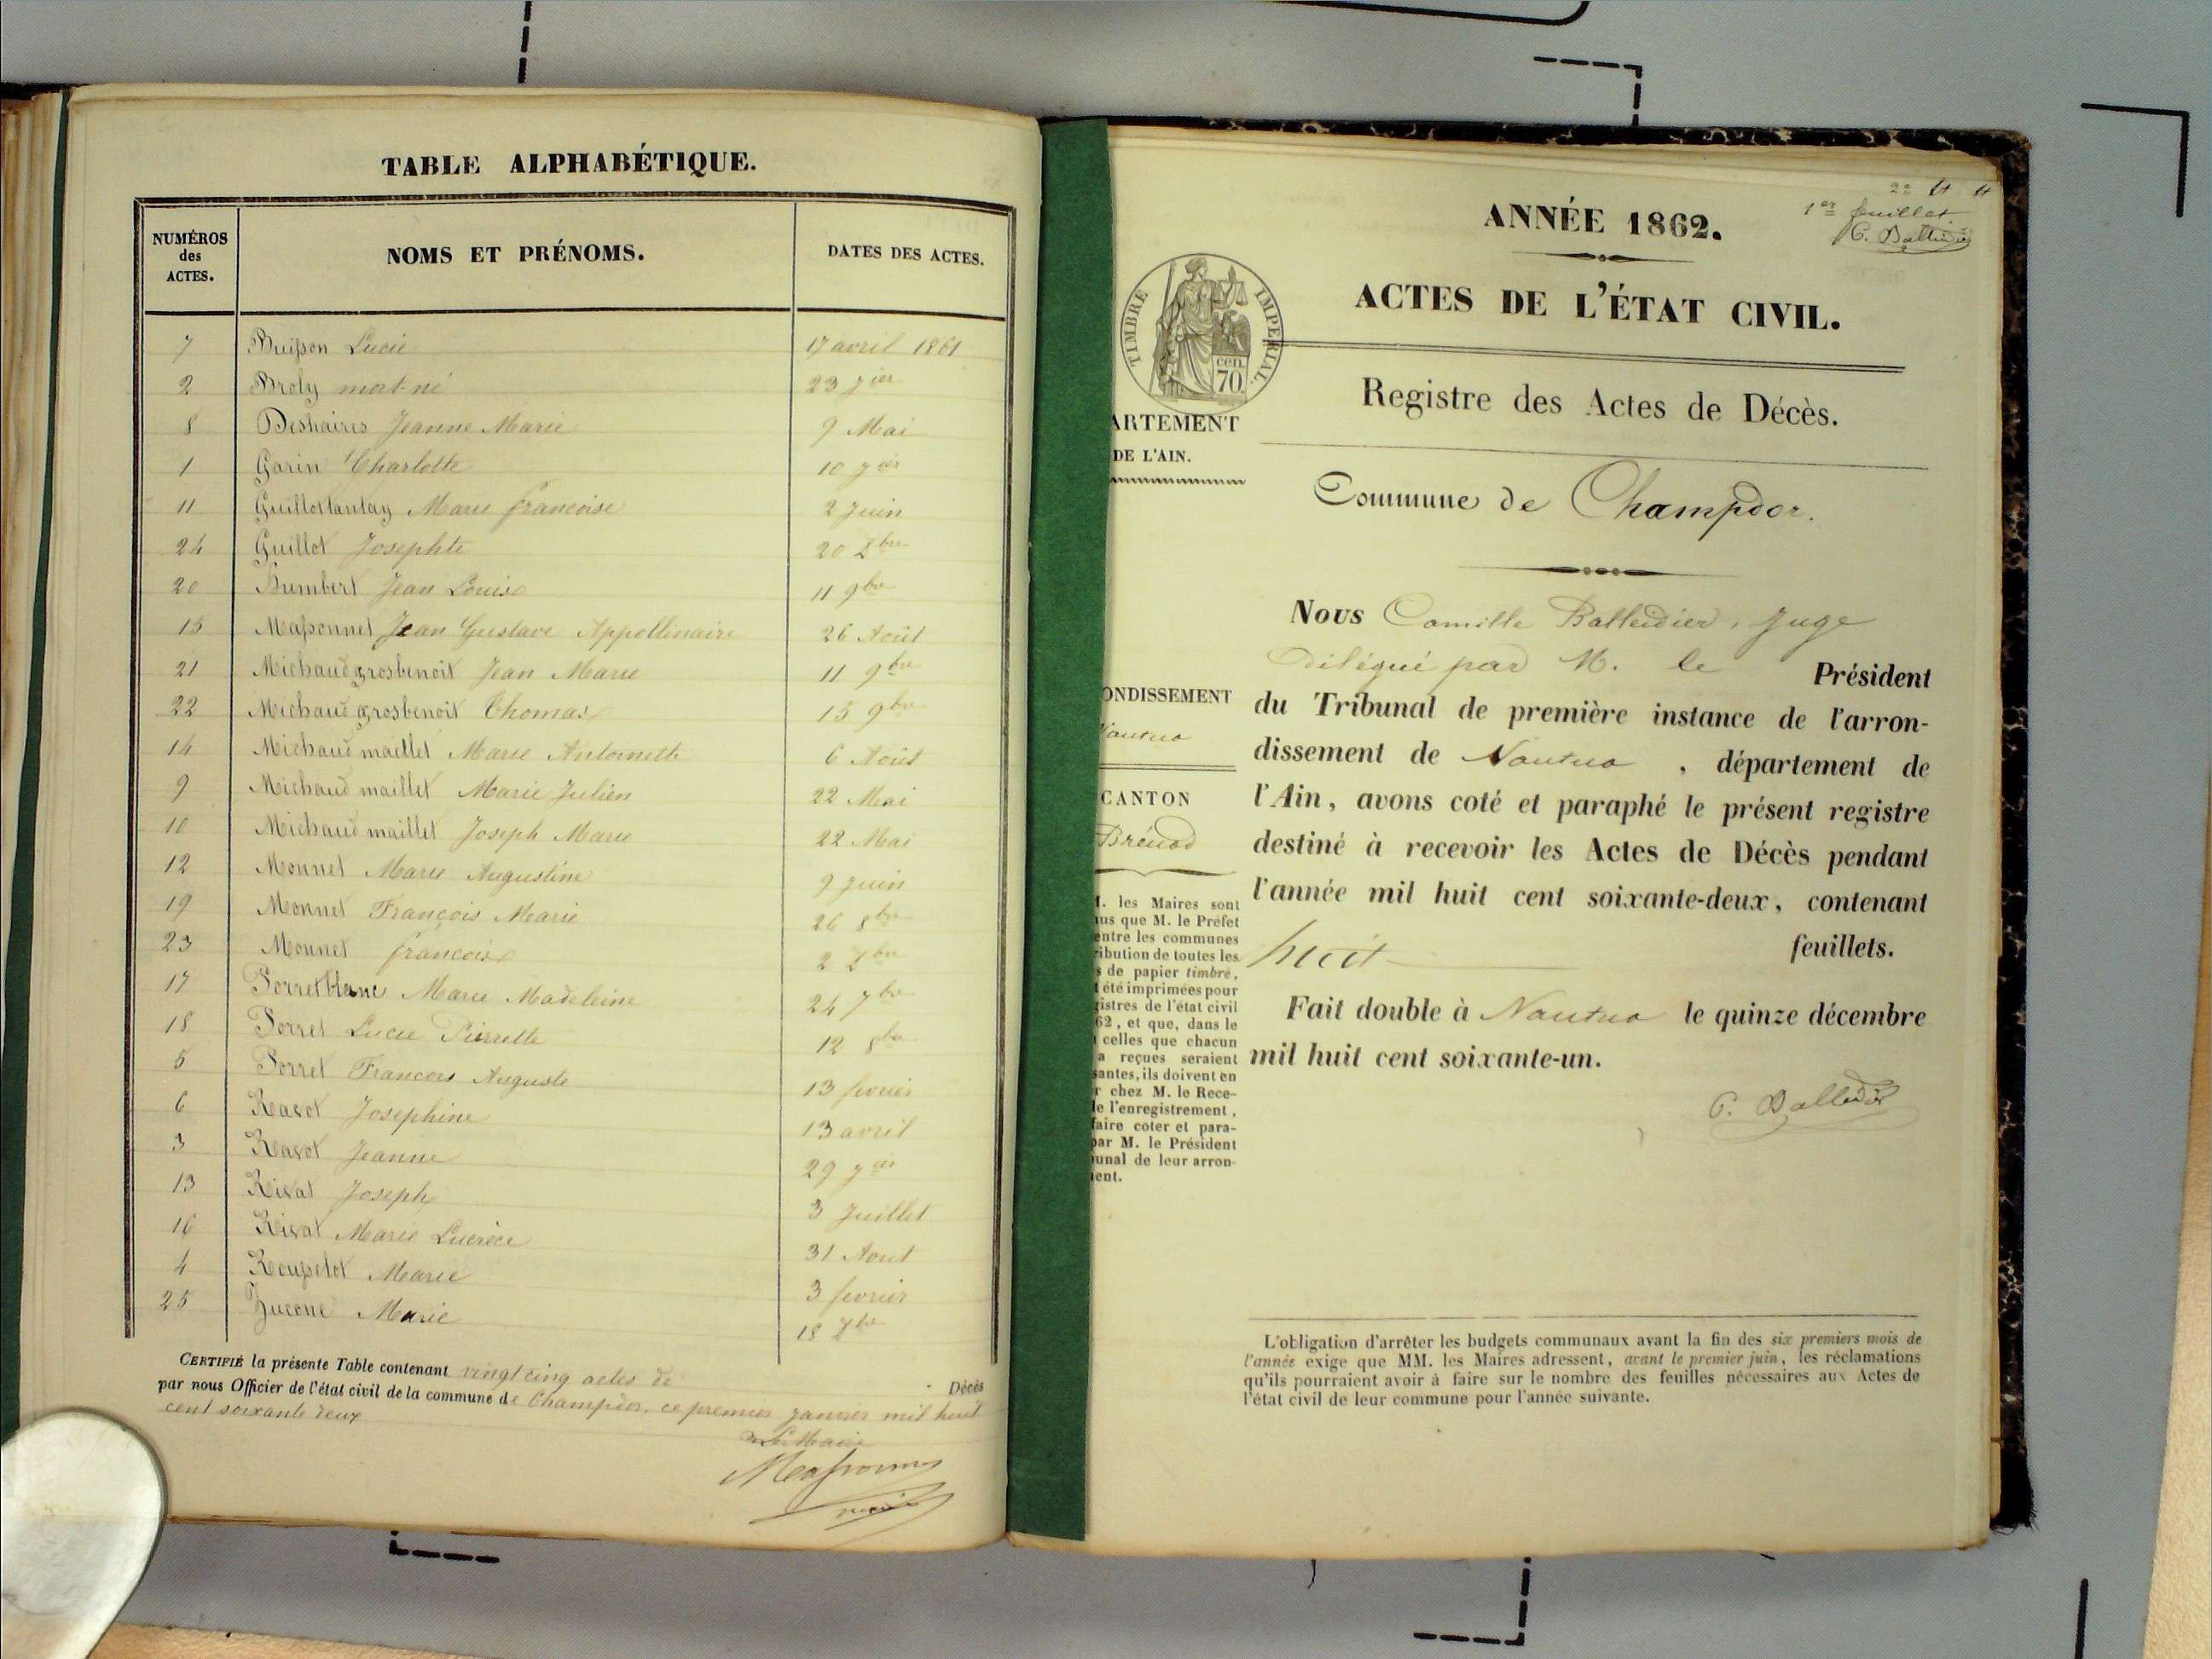 TABLE ALPHABÉTIQUE.
NUMÉROS des ACTES. NOMS ET PRÉNOMS. DATES DES ACTES.
7 Buisson Lucie 17 avril 1861
2 Broly mort-né 23 jer
8 Deshaires Jeanne Marie 9 Mai
1 Garin Charlotte 10 jer
11 Guillottantay Marie françoise 2 Juin
24 Guillot Josephte 20 Xbre
20 Humbert Jean Louis 11 9bre
15 Massonnet Jean Gustave Appollinaire 26 Août
21 Michaud grosbenoit Jean Marie 11 9bre
22 Michaud grosbenoit Thomas 15 9bre
14 Michaud maillet Marie Antoinette 6 Août
9 Michaud maillet Marie Julien 22 Mai
10 Michaud maillet Joseph Marie 22 Mai
12 Monnet Marie Augustine 9 Juin
19 Monnet François Marie 26 8bre
23 Monnet françois 2 Xbre
17 Sorret blanc Marie Madeleine 24 7bre
18 Sorret Lucie Pierrette 12 8bre
5 Sorret Francois Auguste 13 fevrier
6 Ravot Josephine 13 avril
3 Ravot Jeanne 29 jer
13 Rivat Joseph 3 Juillet
16 Rivat Marie Lucrèce 31 Aout
4 Rousselot Marie 3 fevrier
25 Zucone Marie 18 Xbre
CERTIFIÉ la présente Table contenant vingt cinq actes de Décès
par nous Officier de l'état civil de la commune de Champdor, ce premier janvier mil huit
cent soixante deux
Le Maire
Massonnet
22
1er feuillet.
C. Balleidier
ANNÉE 1862.
ACTES DE L'ÉTAT CIVIL.
TIMBRE IMPERIAL.
cen.
70
Registre des Actes de Décès.
ARTEMENT
DE L'AIN.
Commune de Champdor.
Nous Camille Balleidier, Juge
délégué par M. le Président
du Tribunal de première instance de l'arron-
dissement de Nantua, département de
l'Ain, avons coté et paraphé le présent registre
destiné à recevoir les Actes de Décès pendant
l'année mil huit cent soixante-deux, contenant
huit feuillets.
Fait double à Nantua le quinze décembre
mil huit cent soixante-un.
C. Balleidier
ONDISSEMENT
Nantua
CANTON
Brénod
M. les Maires sont
us que M. le Préfet
entre les communes
ribution de toutes les
s de papier timbré,
t été imprimées pour
gistres de l'état civil
62, et que, dans le
celles que chacun
a reçues seraient
santes, ils doivent en
r chez M. le Rece-
e l'enregistrement,
faire coter et para-
par M. le Président
unal de leur arron-
ent.
L'obligation d'arrêter les budgets communaux avant la fin des six premiers mois de
l'année exige que MM. les Maires adressent, avant le premier juin, les réclamations
qu'ils pourraient avoir à faire sur le nombre des feuilles nécessaires aux Actes de
l'état civil de leur commune pour l'année suivante.